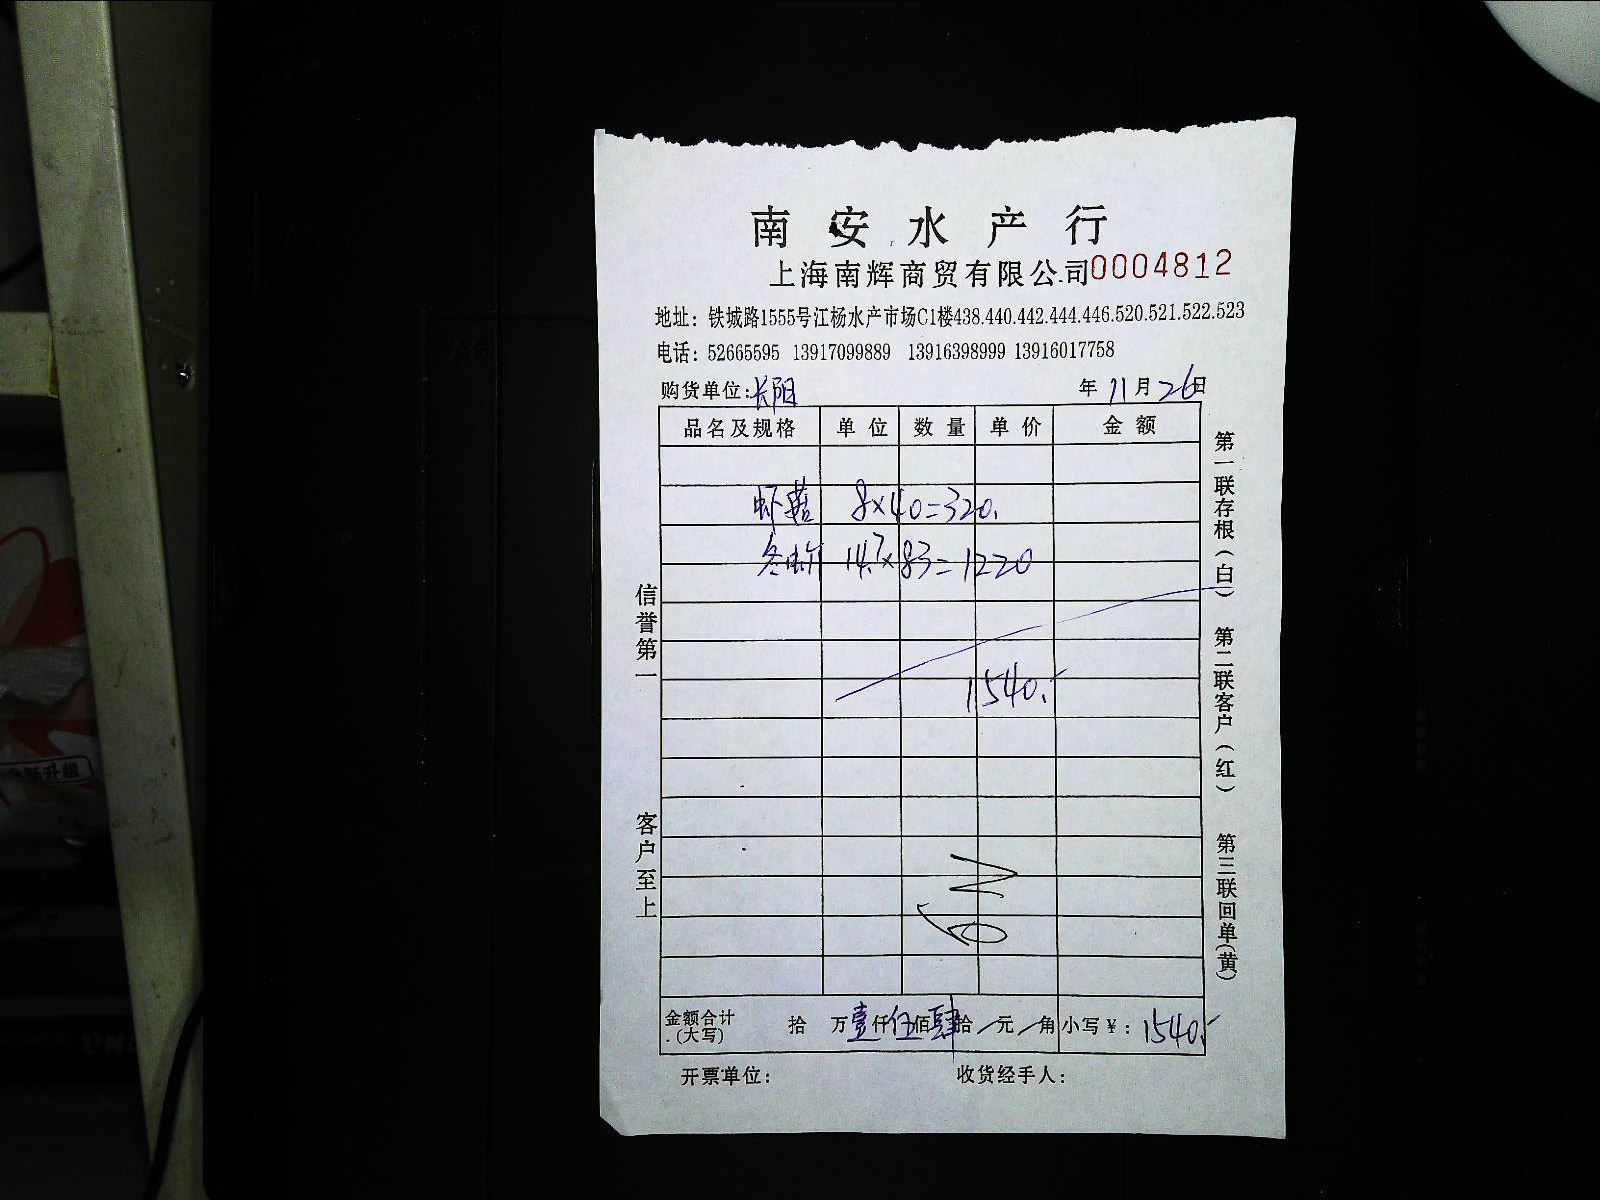 南安水产行
上海南辉商贸有限公司0004812
地址：铁城路1555号江杨水产市场C1楼438.440.442.444.446.520.521.522.523
电话：52665595 13917099889 13916398999 13916017758
购货单位：长阳 年 11月26日
品名及规格 单位 数量 单价 金额
虾 8×40=320.
14.7×83=1220
1540.
金额合计(大写) 拾 万壹仟伍佰肆拾 元 角 小写¥：1540.
开票单位： 收货经手人：
信誉第一
客户至上
第一联存根(白) 第二联客户(红) 第三联回单(黄)
全新升级